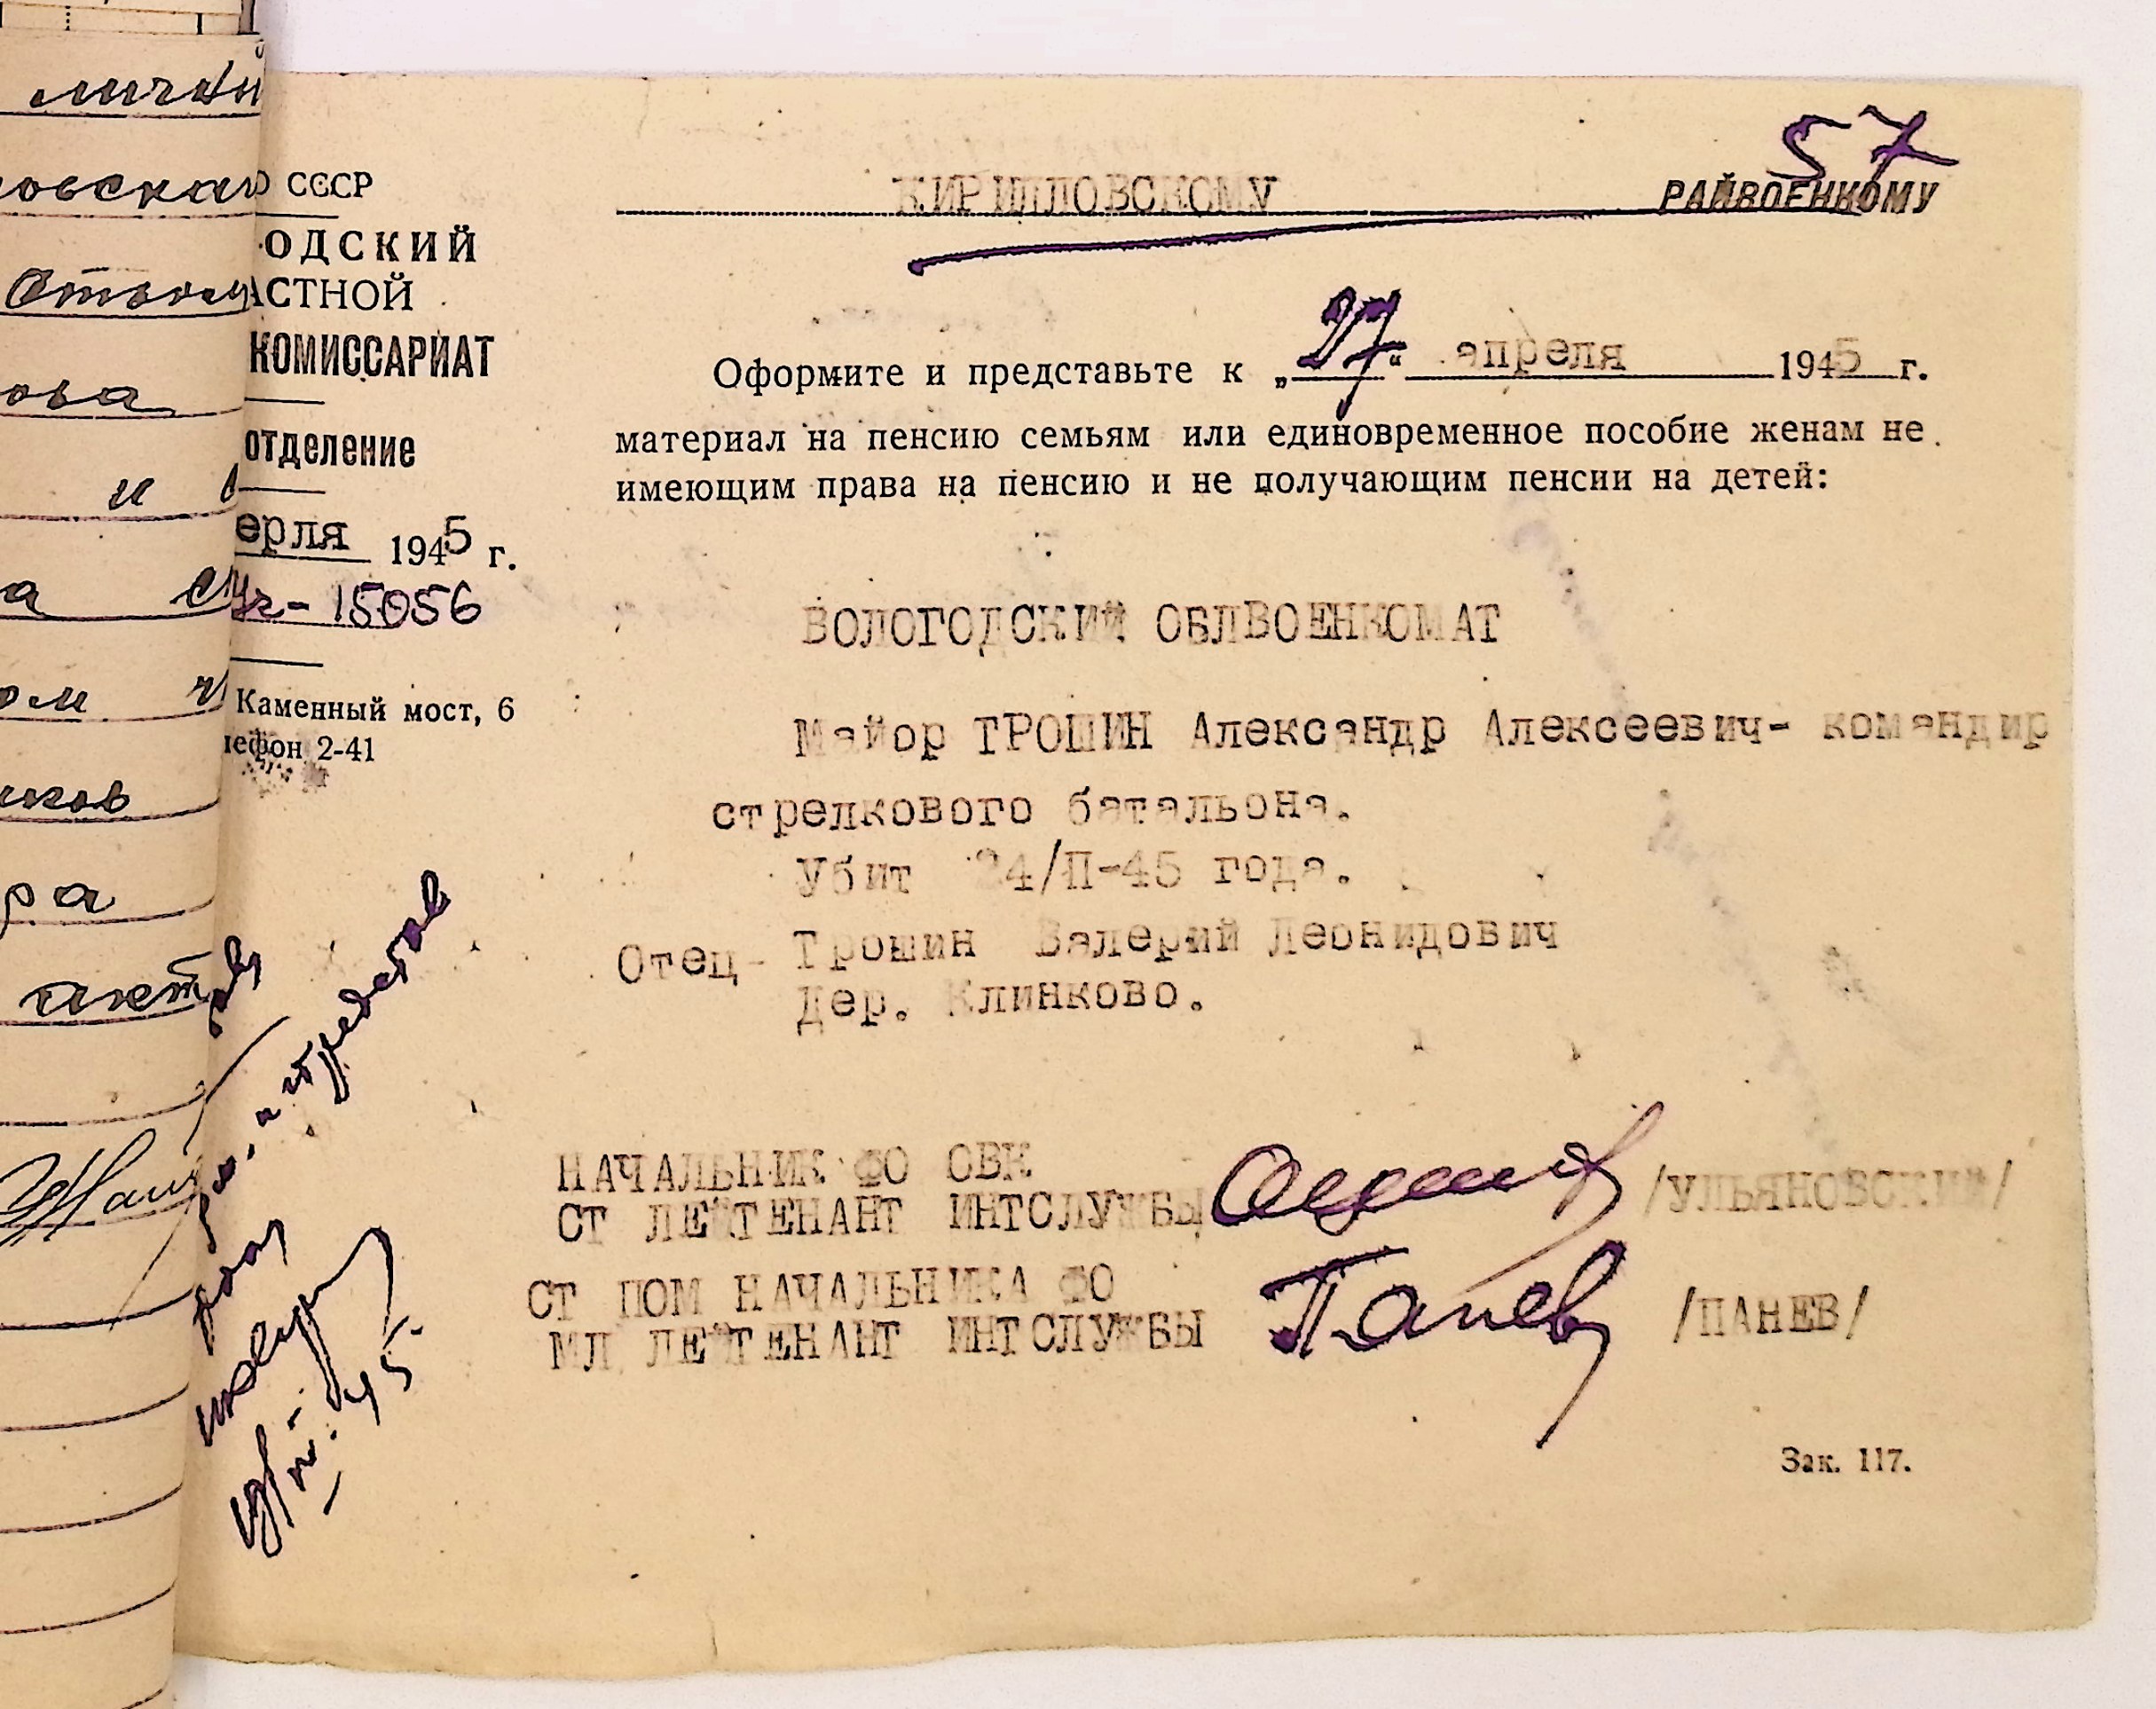 СССР
ОДСКИЙ
АСТНОЙ
КОМИССАРИАТ
отделение
ерля 1945 г.
15056
Каменный мост, 6
лефон 2-41
57
КИРИЛЛОВСКОМУ РАЙВОЕНКОМУ
Оформите и представьте к „27“ апреля 1945 г.
материал на пенсию семьям или единовременное пособие женам не
имеющим права на пенсию и не получающим пенсии на детей:
ВОЛОГОДСКИЙ ОБЛВОЕНКОМАТ
Майор ТРОШИН Александр Алексеевич- командир
стрелкового батальона.
Убит 24/II-45 года.
Отец- Трошин Валерий Леонидович
Дер. Клинково.
НАЧАЛЬНИК ФО ОВК
СТ ЛЕЙТЕНАНТ ИНТСЛУЖБЫ /УЛЬЯНОВСКИЙ/
СТ ПОМ НАЧАЛЬНИКА ФО
МЛ ЛЕЙТЕНАНТ ИНТСЛУЖБЫ Панев /ПАНЕВ/
Зак. 117.
личны
овская
ова
и
а
ом
иков
ра
акт